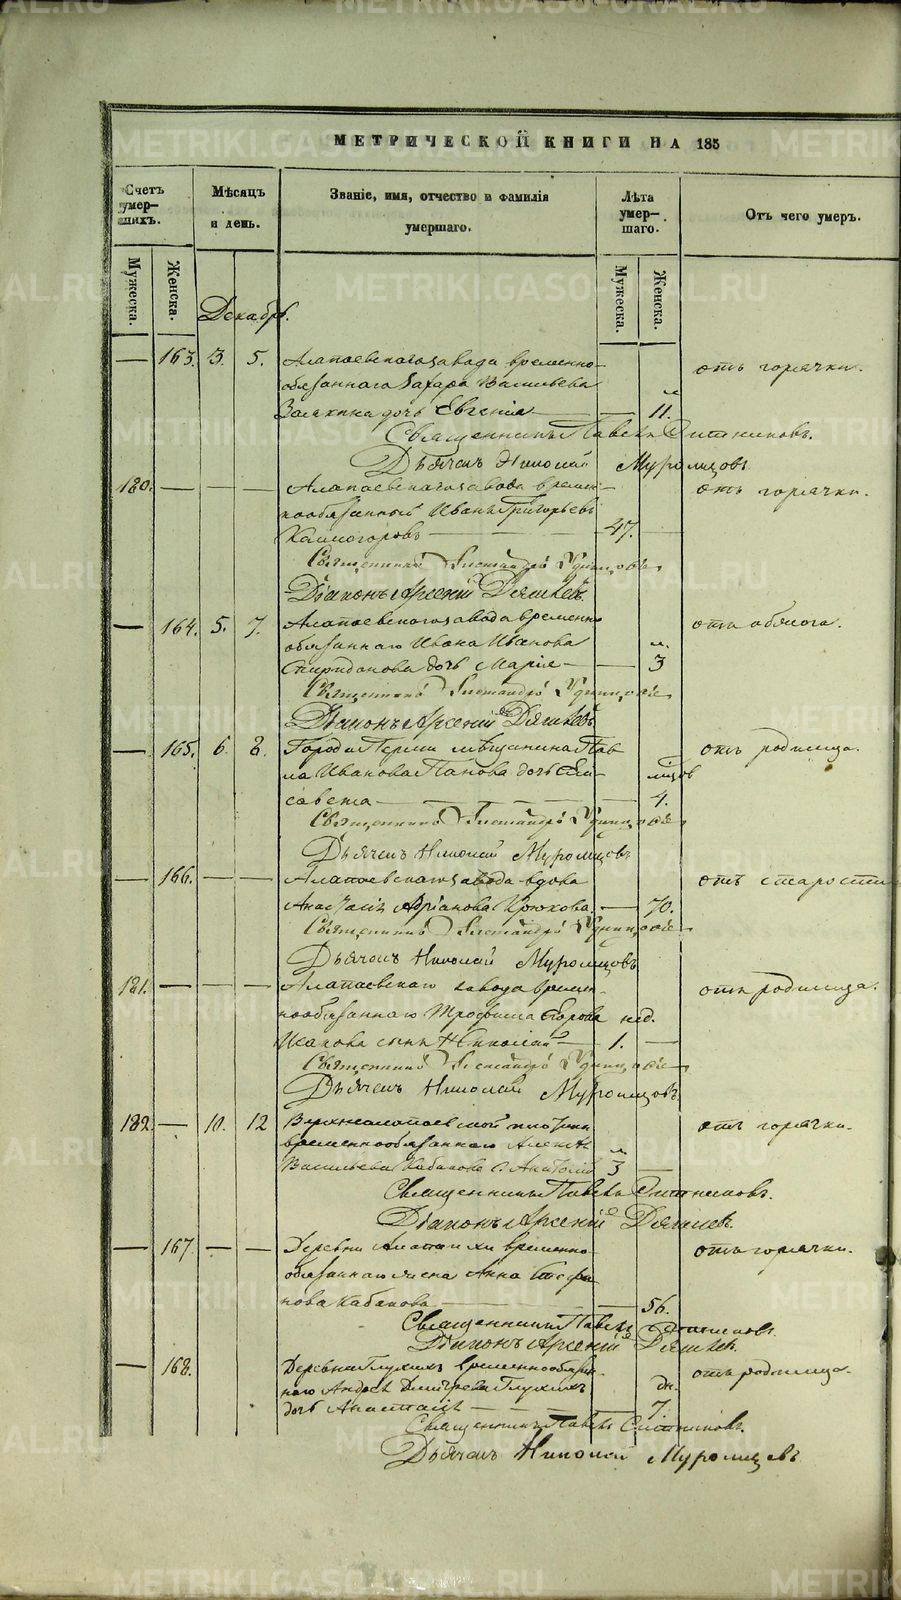 МЕТРИЧЕСКОЙ КНИГИ НА 185
Счетъ умер-шихъ.
Мѣсяцъ и день.
Званіе, имя, отчество и фамилія умершаго.
Лѣта умер-шаго.
Отъ чего умеръ.
Мужеска. Женска.
Мужеска. Женска.
Декабрь.
— 163. 3. 5. Алапаевскаго завода временно- отъ горячки.
обязаннаго Захара Васильева м.
дочь Евгенія — 11.
Священникъ Павелъ Ситниковъ.
Дьячекъ Николай Муромцовъ
180. — — — Алапаевскаго завода времен- отъ горячки.
нообязанный Иванъ Григорьевъ
Каимогоровъ — 47. —
Священникъ Александръ Удинцовъ
Діаконъ Арсеній Дягилевъ.
— 164. 5. 7. Алапаевскаго завода временно
обязаннаго Ивана Иванова м.
Спиридонова дочь Марія — — 3
Священникъ Александръ Удинцовъ
Діаконъ Арсеній Дягилевъ
— 165. 6. 8. Города Перми мѣщанина Пав- отъ родимца.
ла Иванова Попова дочь Ели- мцов
савета — 4.
Священникъ Александръ Удинцовъ
Дьячекъ Николай Муромцовъ
— 166. — — Алапаевскаго завода вдова отъ старости
Анастасія Адріанова Крюкова. — 70.
Священникъ Александръ Удинцовъ
Дьячекъ Николай Муромцовъ
181. — — — Алапаевскаго завода времен- отъ родимца.
нообязаннаго Трофима Егорова нед.
Исакова сынъ Николай — 1. —
Священникъ Александръ Удинцовъ
Дьячекъ Николай Муромцовъ
182. — 10. 12 отъ горячки.
временнообязаннаго Алексѣя м
Васильева Кабакова с. Анатолій 3 —
Священникъ Павелъ Ситниковъ.
Діаконъ Арсеній Дягилевъ.
— 167 — — Деревни Алапаихи временно- отъ горячки.
обязаннаго жена Анна Стефа-
нова Кабакова — 56.
Священникъ Павелъ Ситниковъ
Діаконъ Арсеній Дягилевъ.
— 168. Деревни Глухихъ временнообязан- отъ родимца.
наго Андрея Дмитріева Глухихъ дн.
дочь Анастасія — 7.
Священникъ Павелъ Ситниковъ.
Дьячекъ Николай Муромцовъ
METRIKI.GASO-URAL.RU